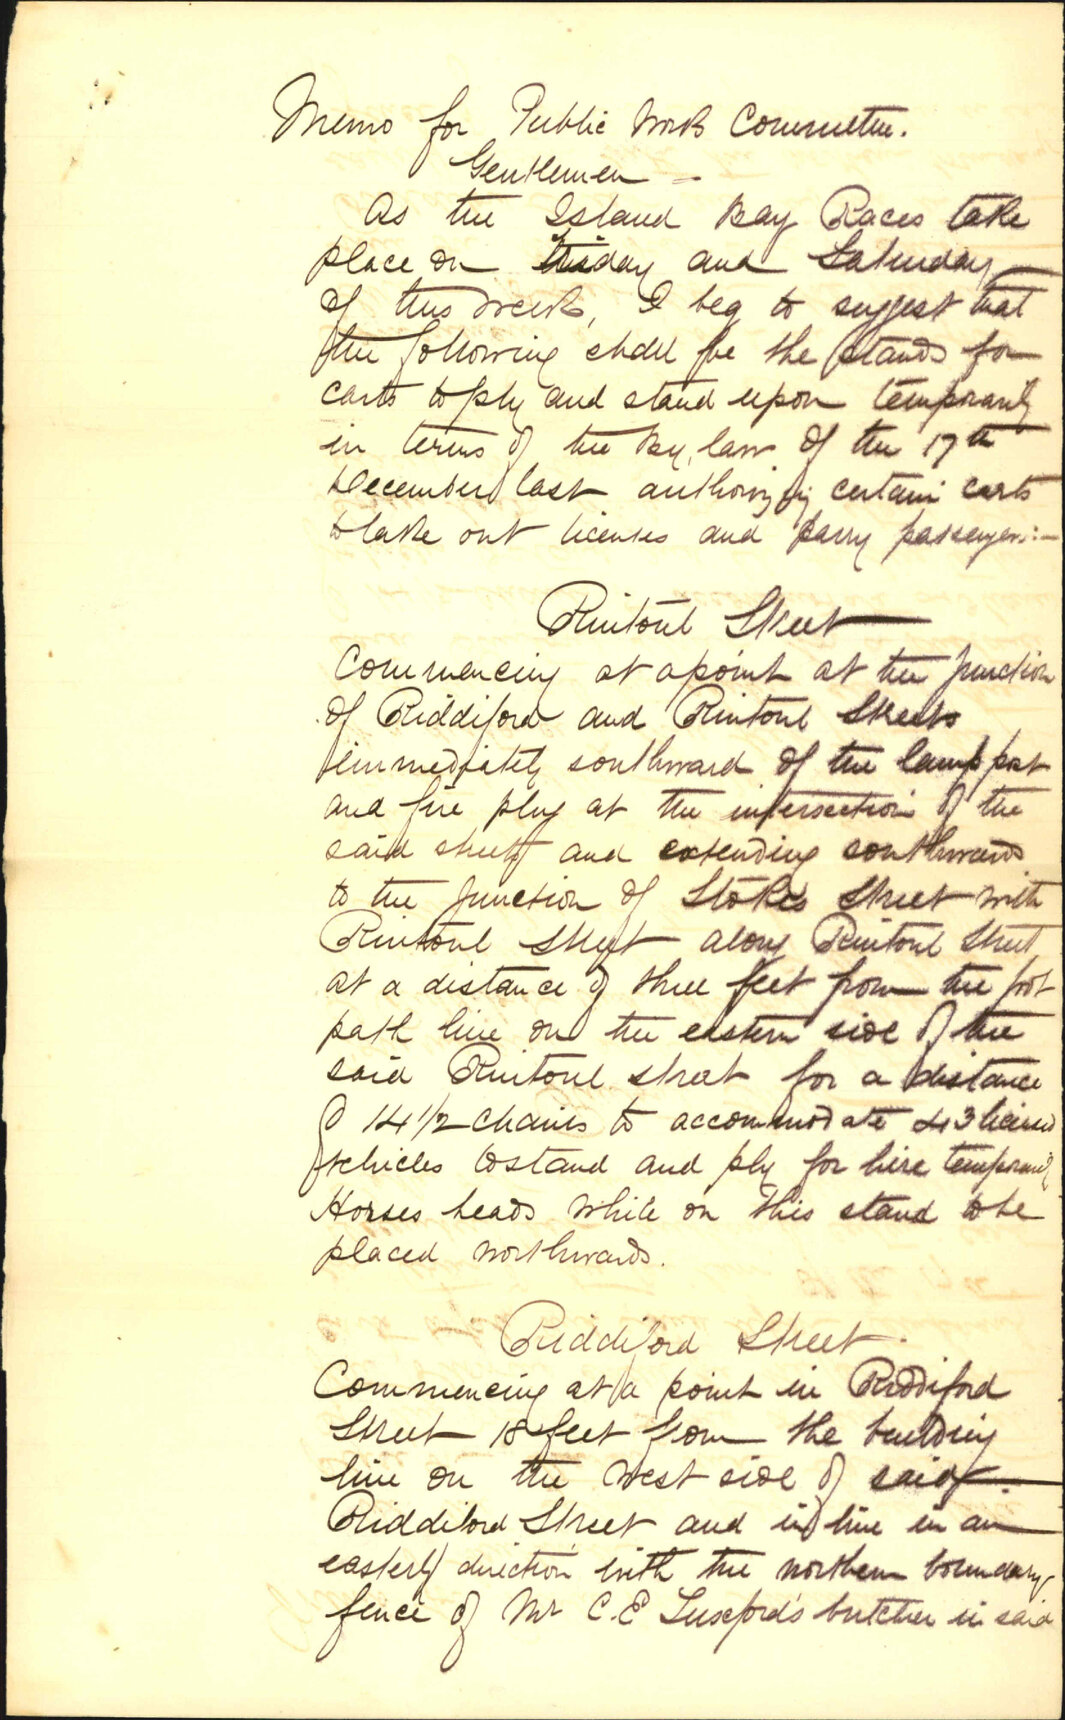 Memo for Public Works Committee.
Gentlemen -
As the Island Bay Races take
place on Friday and Saturday
of this week, I beg to suggest that
the following shall be the stands for
carts to ply and stand upon temporarily
in terms of the By, law of the 17th
December last authorizing certain carts
to take out licenses and carry passengers:-
Rintoul Street
Commencing at a point at the junction
of Riddiford and Rintoul Streets
immediately southward of the lamp post
and fire plug at the intersection of the
said streets and extending southwards
to the junction of Stokes Street with
Rintoul Street along Rintoul Street
at a distance of three feet from the foot
path line on the eastern side of the
said Rintoul street for a distance
of 14 1/2 chains to accommodate 43 licensed
vehicles to stand and ply for hire temporarily
Horses heads while on this stand to be
placed northwards.
Riddiford Street.
Commencing at a point in Riddiford
Street 18 feet from the building
line on the West side of said
Riddiford Street and in line in an
easterly direction with the northern boundary
fence of Mr C.E Luxford's butcher in said